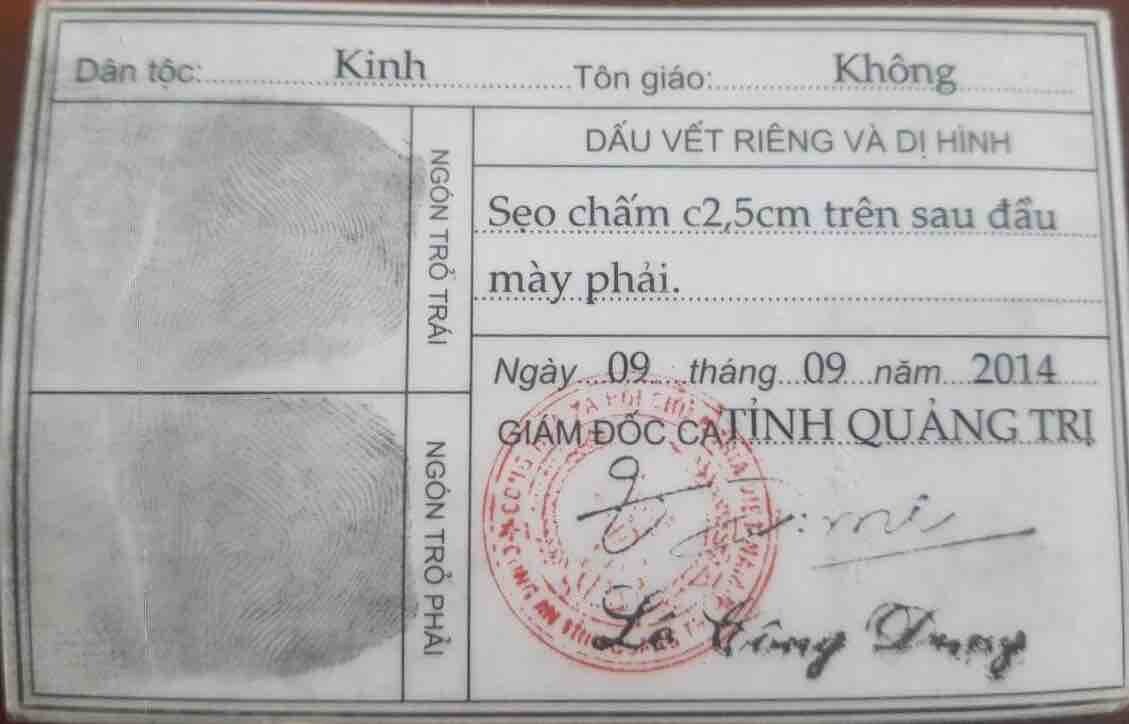 Dân tộc: Kinh Tôn giáo: Không
NGÓN TRỎ TRÁI
DẤU VẾT RIÊNG VÀ DỊ HÌNH
Sẹo chấm c2,5cm trên sau đầu
mày phải.
Ngày 09 tháng 09 năm 2014
GIÁM ĐỐC CA TỈNH QUẢNG TRỊ
NGÓN TRỎ PHẢI
Lê Công Dung